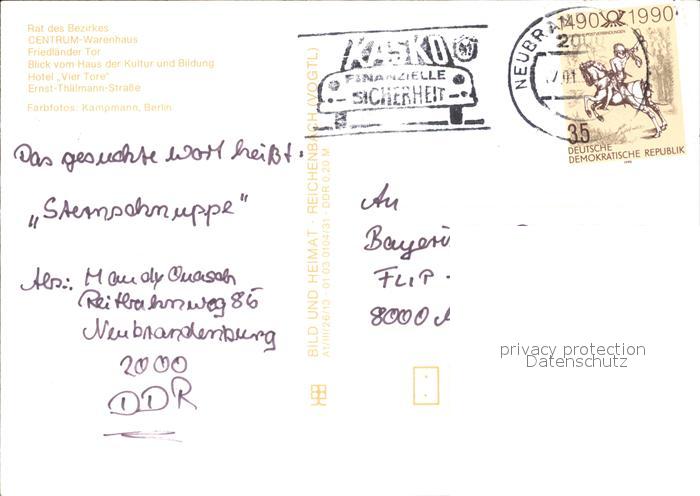 Rat des Bezirkes
CENTRUM-Warenhaus
Friedländer Tor
Blick vom Haus der Kultur und Bildung
Hotel „Vier Tore"
Ernst-Thälmann-Straße
Farbfotos: Kampmann, Berlin
Das gesuchte Wort heißt:
„Sternschnuppe"
Abs.: Mandy Quasch
Reitbahnweg 86
Neubrandenburg
2000
DDR
BILD UND HEIMAT · REICHENBACH (VOGTL)
A1/III/26/13 · 01 03 0104/31 · DDR 0,20 M
KASKO
FINANZIELLE
SICHERHEIT
NEUBRAN
20
1490 1990
35
DEUTSCHE
DEMOKRATISCHE REPUBLIK
1990
An
Bayeri
FLIP
8000
privacy protection
Datenschutz